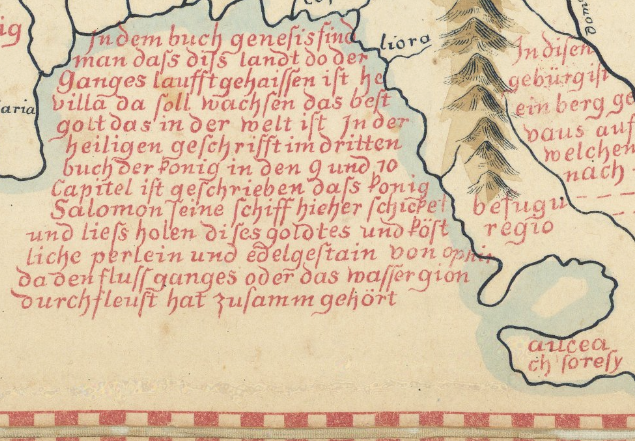 ig
aria
Jn dem buch genesis find
man dass diss landt do der
Ganges laufft gehaissen ist he
villa da soll wachsen das best
golt das in der welt ist Jn der
heiligen geschrifft im dritten
buch der konig in den 9 und 10
Capitel ist geschrieben dass konig
Salomon seine schiff hieher schicket
und liess holen dises goldtes und köst
liche perlein und edelgestain von ophir
da den fluss ganges oder das wasser gion
durchfleust hat zusamm gehört
liora
Jn disen
gebürg ist
ein berg ge
vaus auf
welchen
nach
besugu
regio
aucea
ch soresy